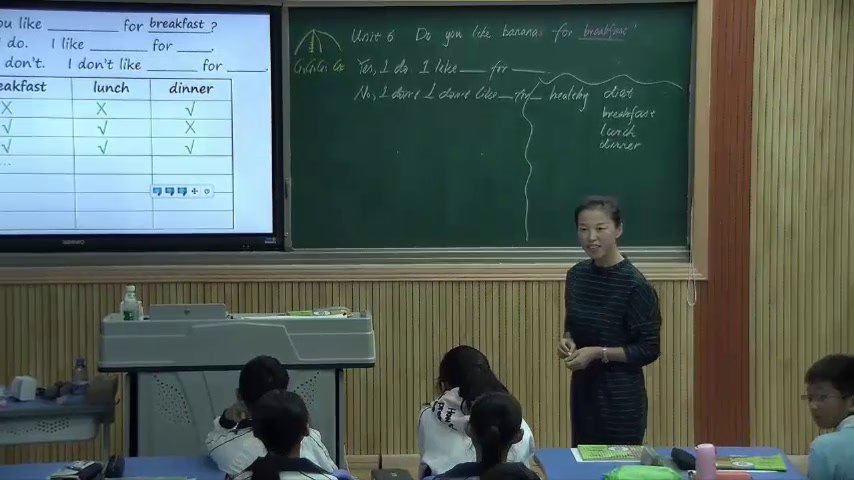 ou like ______ for breakfast ?
do. I like ______ for ____.
don't. I don't like ______ for ____.
eakfast lunch dinner
X X √
√ √ X
√ √ √
...
Unit 6 Do you like bananas for breakfast?
Yes, I do. I like ___ for ___
No, I don't I don't like ___ for ___
healthy diet
breakfast
lunch
dinner